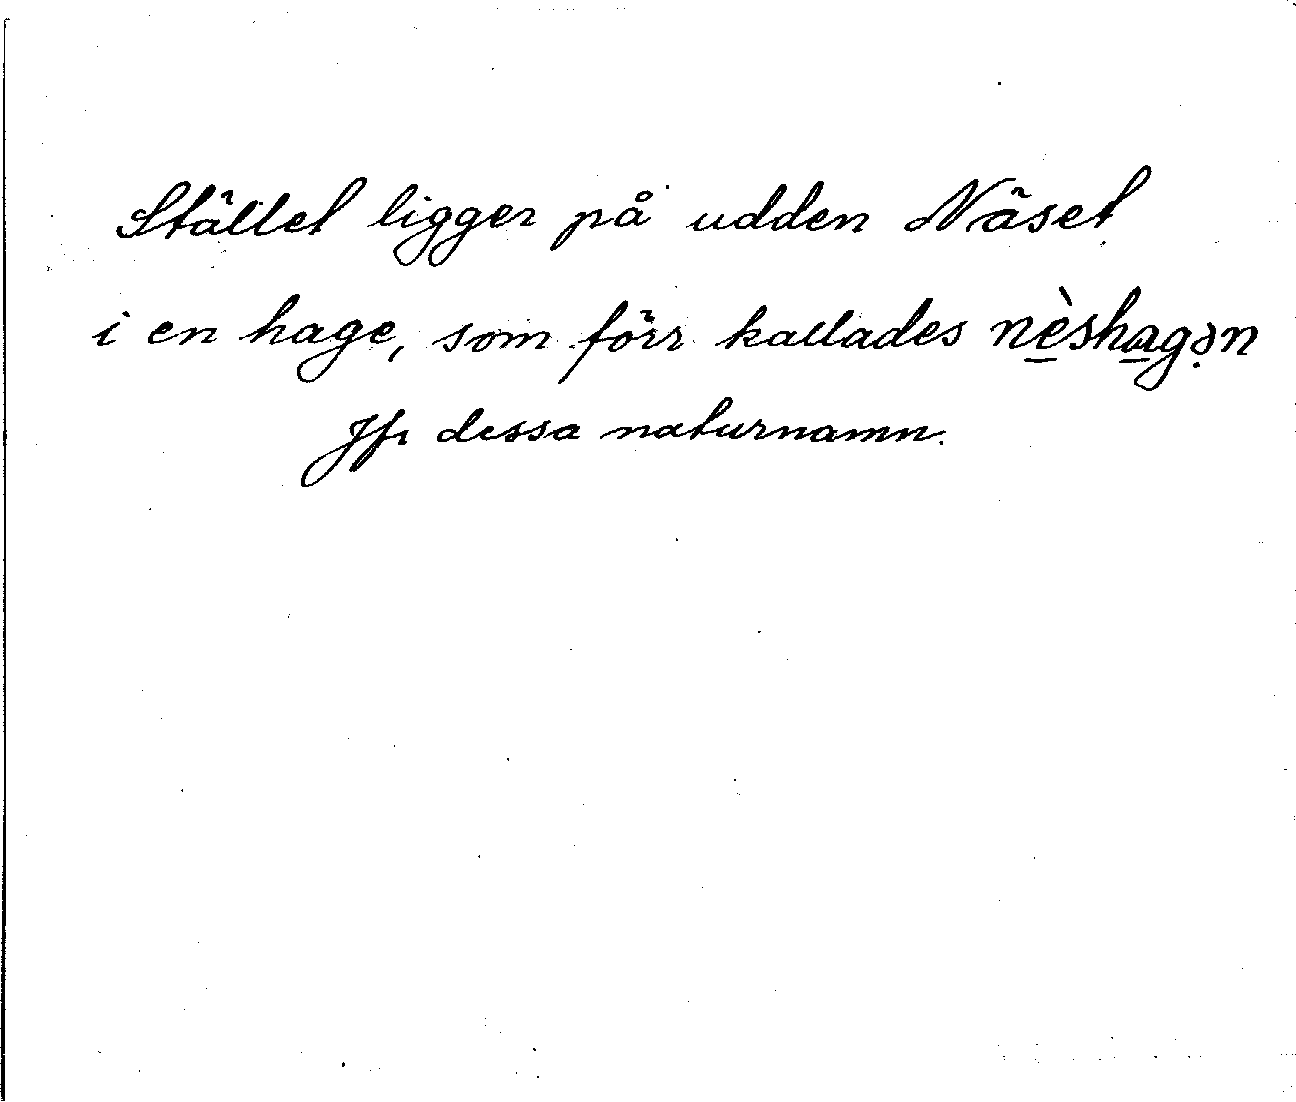 Stället ligger på udden Näset
i en hage, som förr kallades nèshagən
Jfr dessa naturnamn.